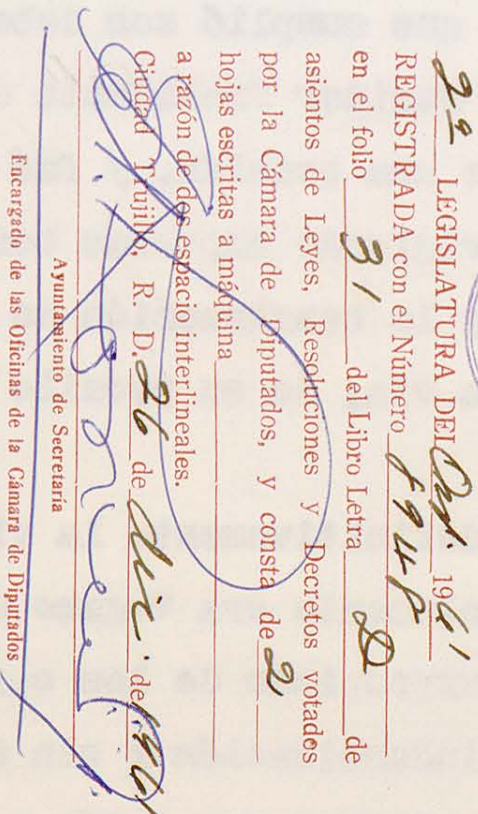 2ª LEGISLATURA DEL Ord. 1961
REGISTRADA con el Número
en el folio 31 del Libro Letra D de
asientos de Leyes, Resoluciones y Decretos votados
por la Cámara de Diputados, y consta de 2
hojas escritas a máquina
a razón de dos espacio interlineales.
Ciudad Trujillo, R. D. 26 de dic. de 1961
Ayuntamiento de Secretaría
Encargado de las Oficinas de la Cámara de Diputados